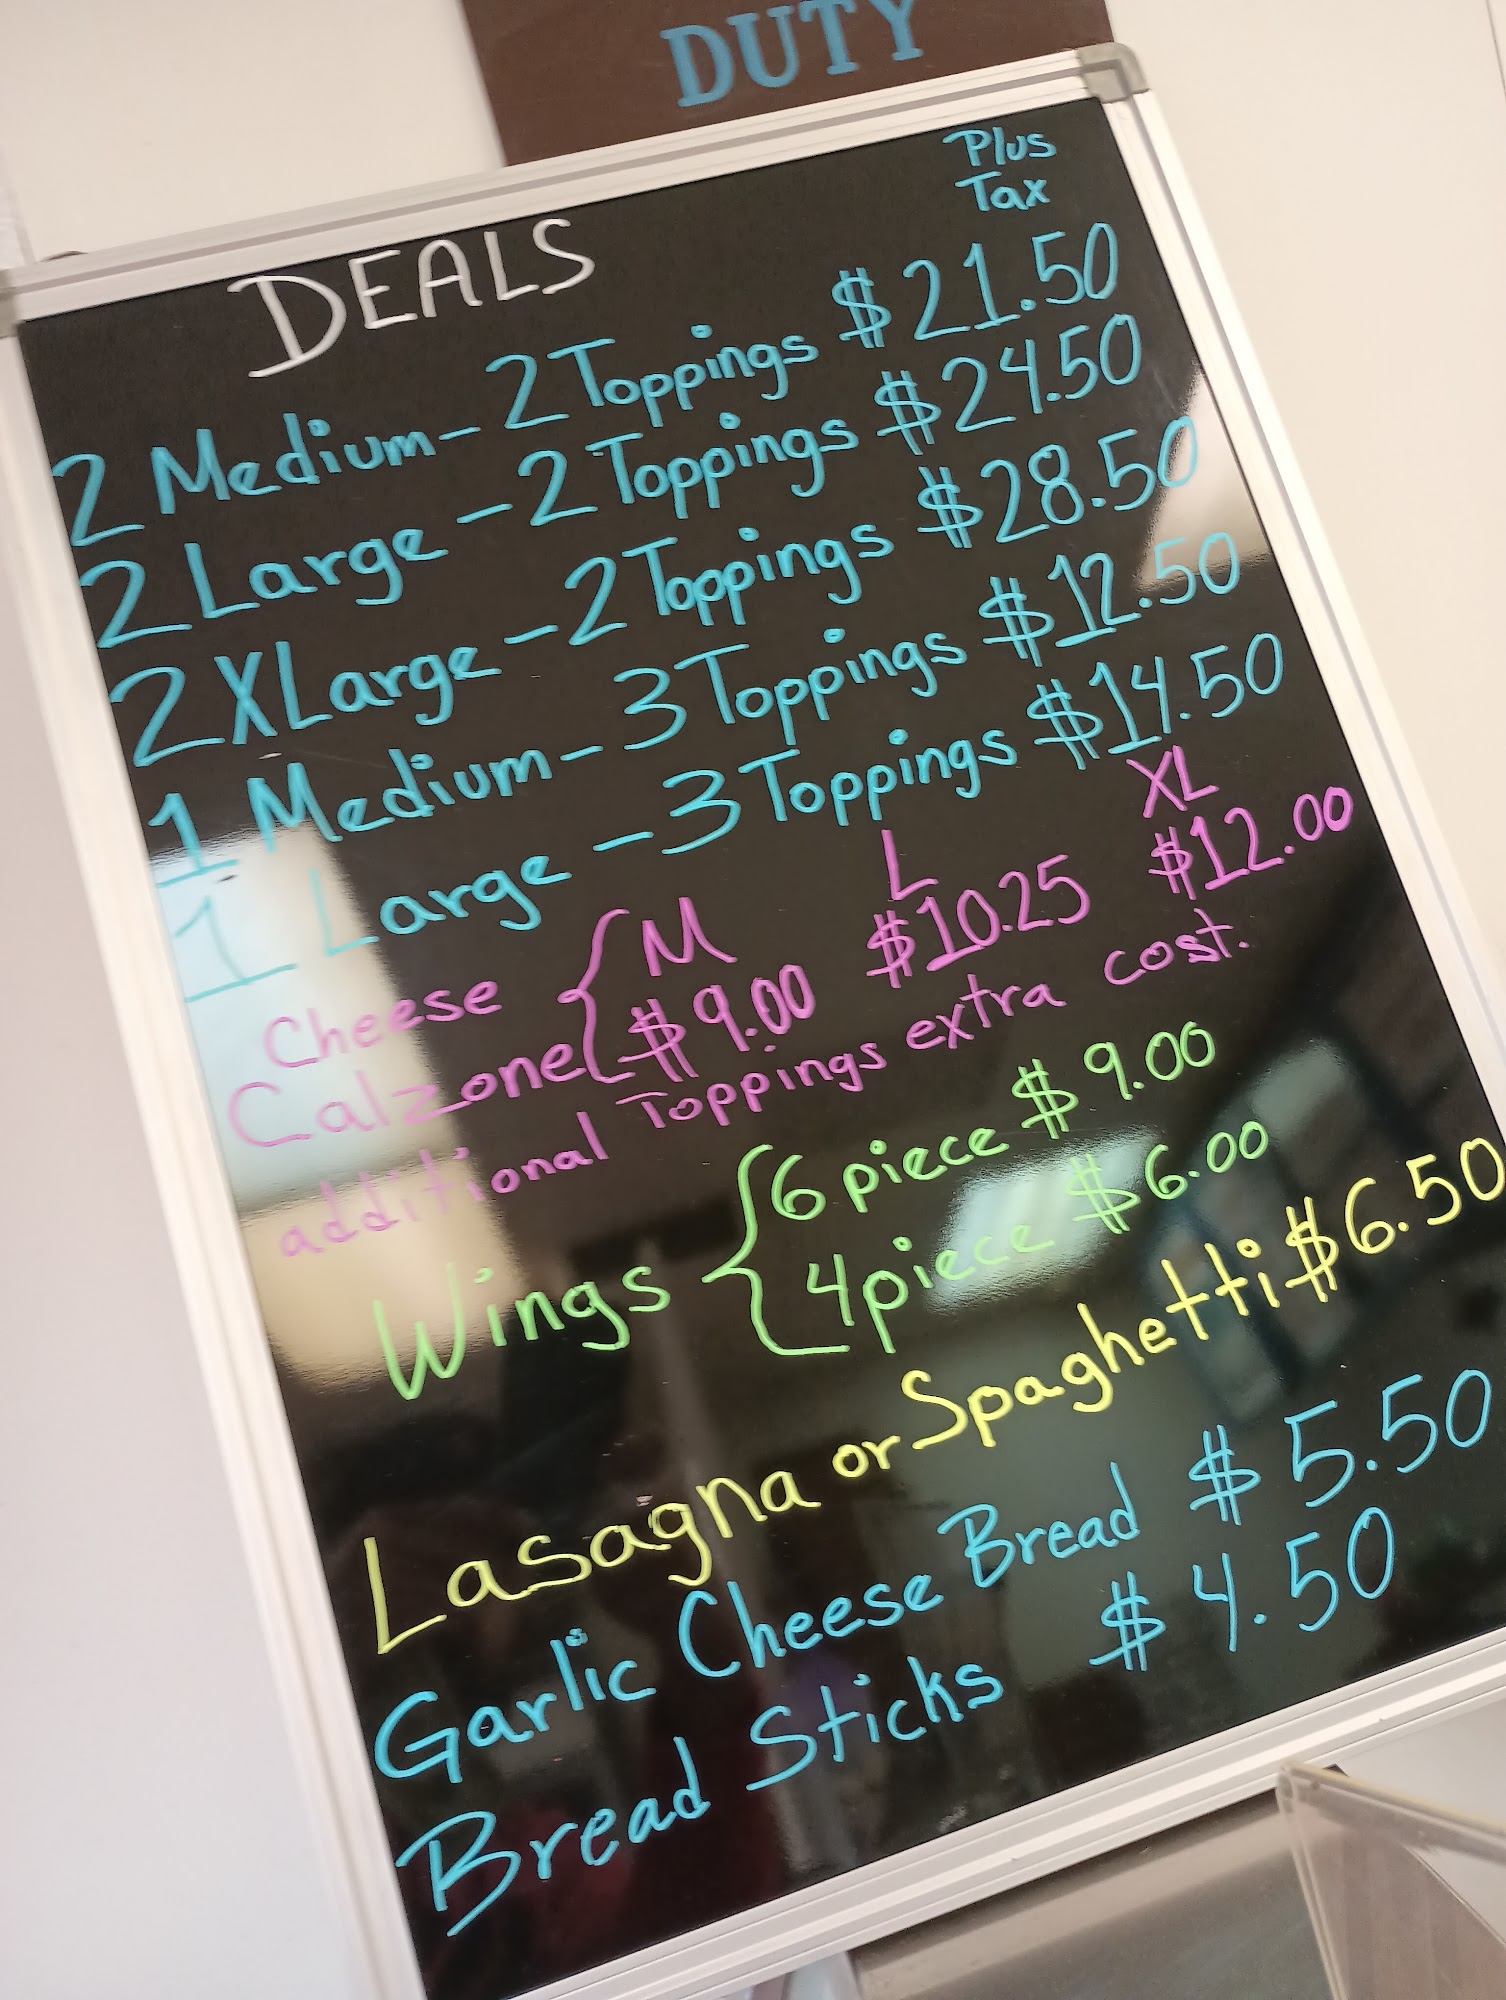 DUTY
Plus
Tax
DEALS
2 Medium - 2 Toppings $21.50
2 Large - 2 Toppings $24.50
2 XLarge - 2 Toppings $28.50
1 Medium - 3 Toppings $12.50
1 Large - 3 Toppings $14.50
M L XL
Cheese
Calzone $9.00 $10.25 $12.00
additional Toppings extra cost.
Wings 6 piece $9.00
4 piece $6.00
Lasagna or Spaghetti $6.50
Garlic Cheese Bread $5.50
Bread Sticks $4.50